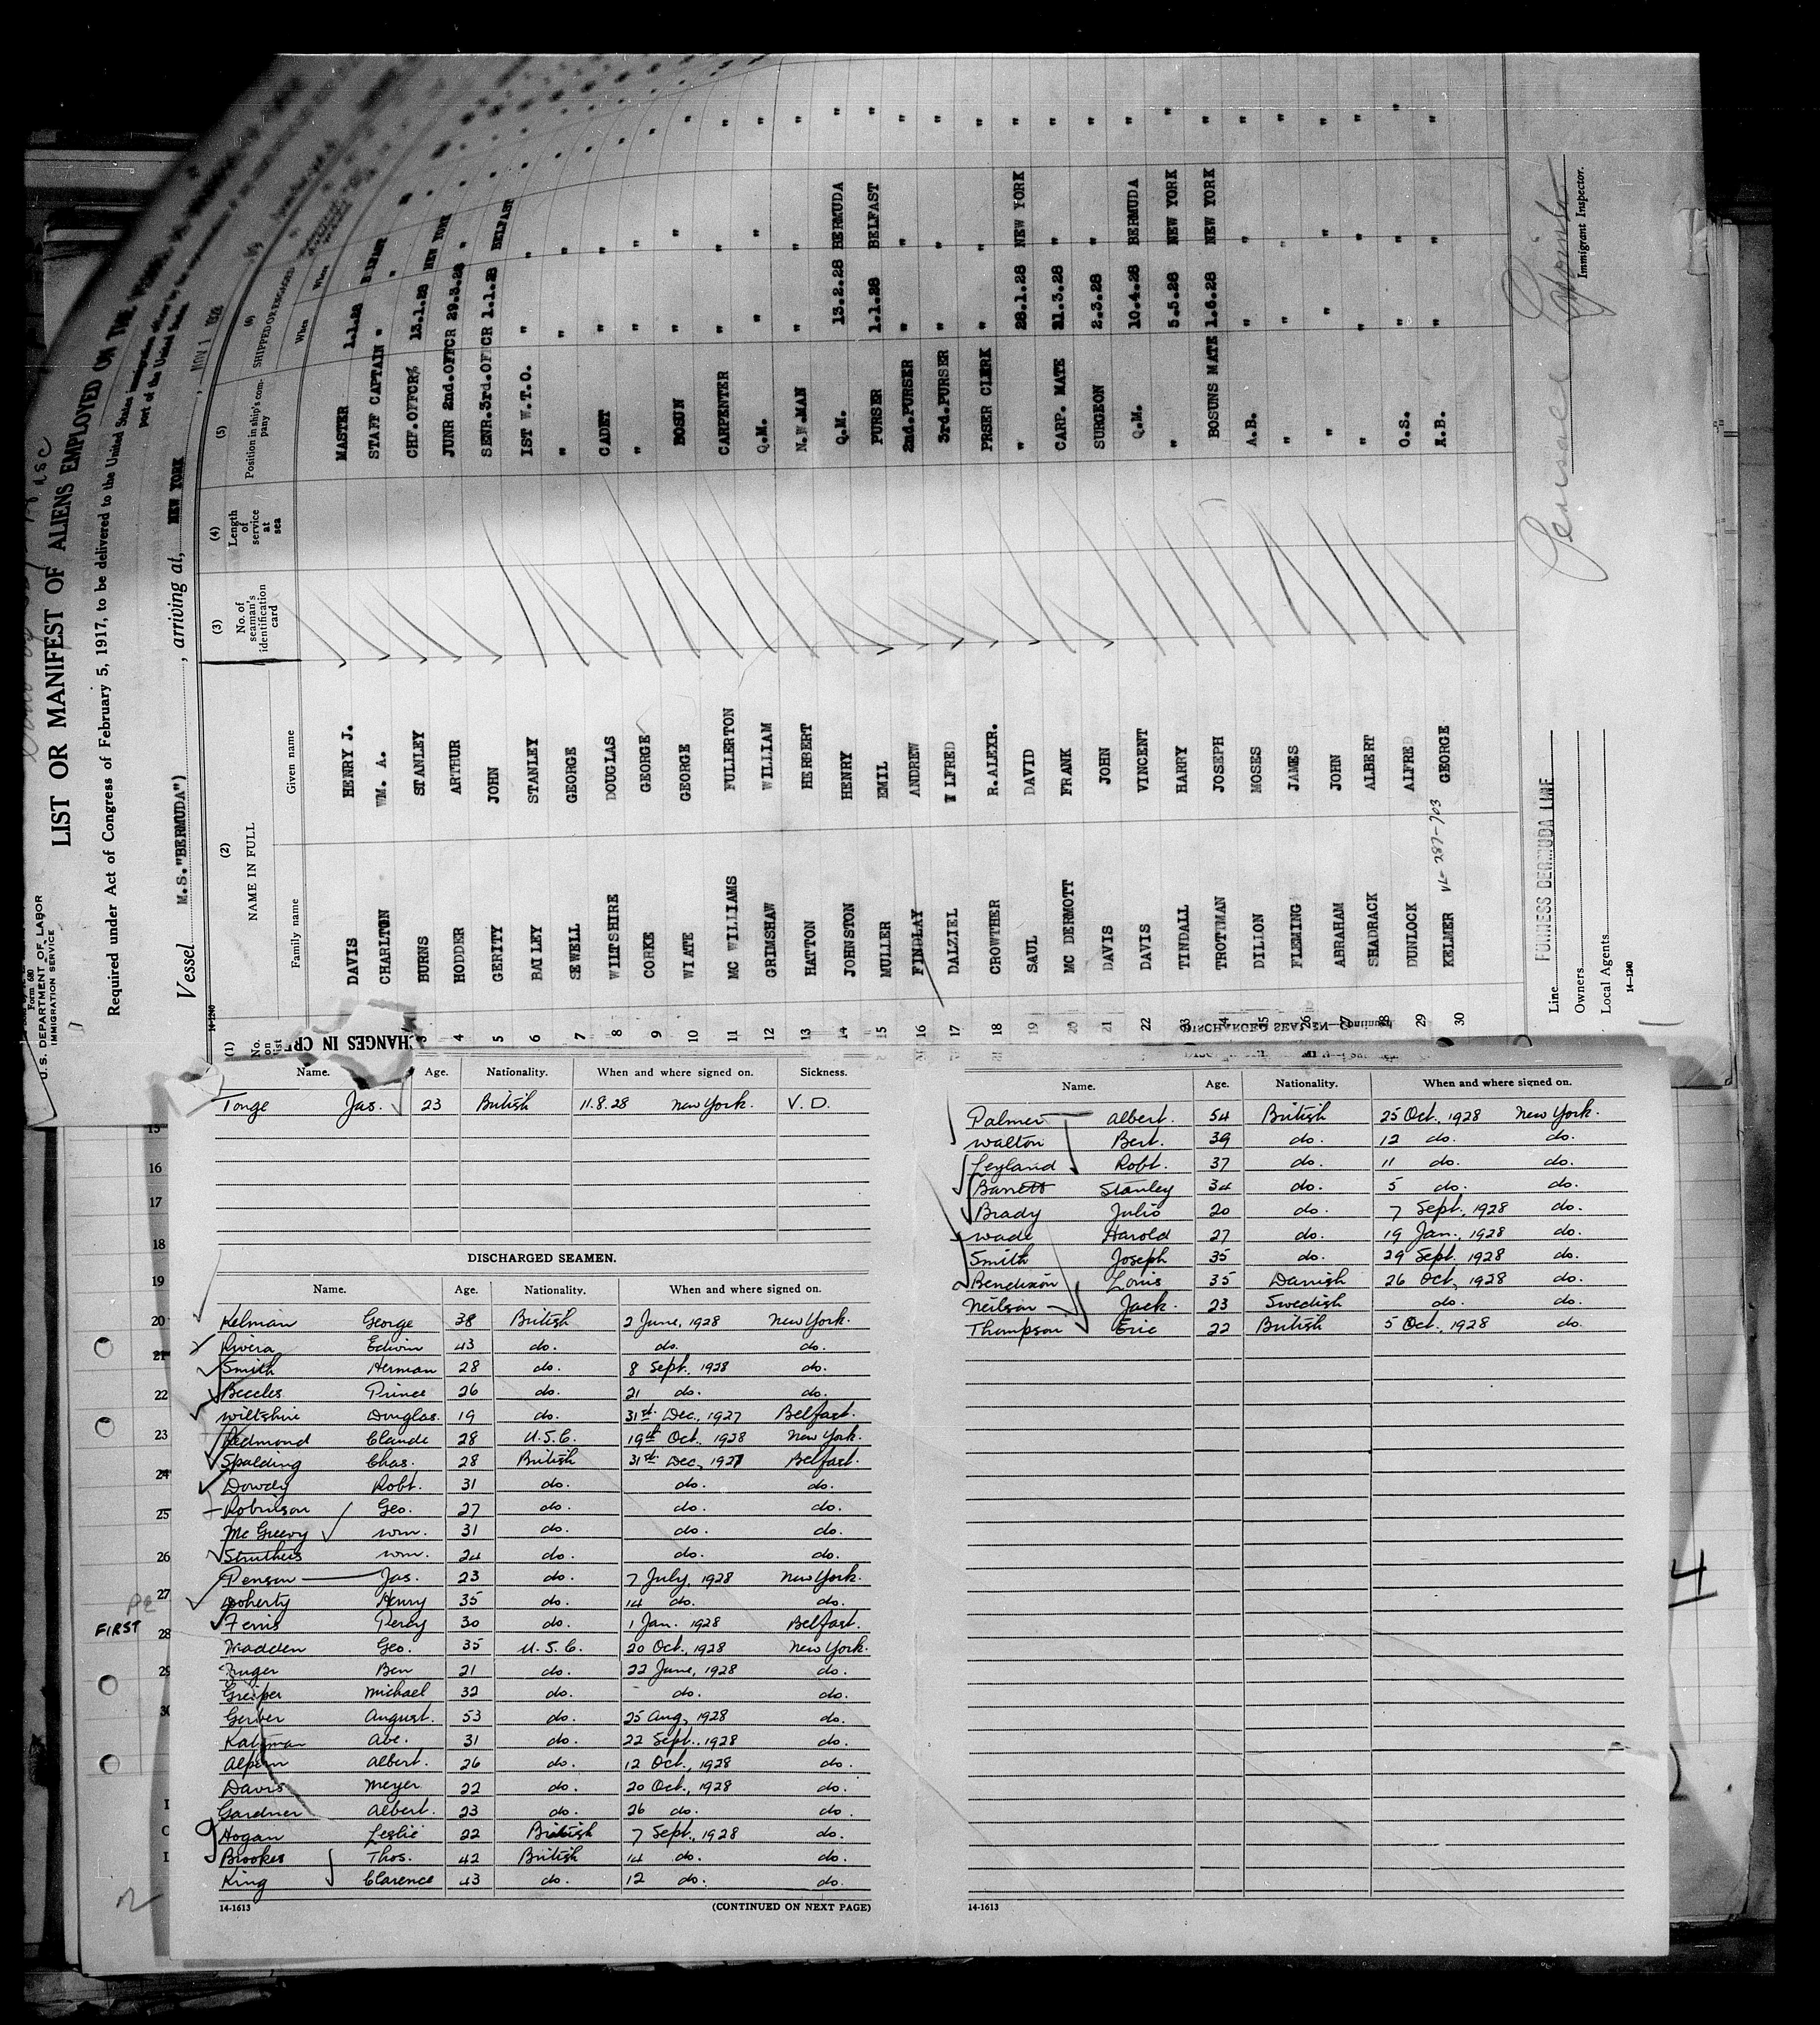 Form 680
U. S. DEPARTMENT OF LABOR
IMMIGRATION SERVICE
LIST OR MANIFEST OF ALIENS EMPLOYED ON THE
Required under Act of Congress of February 5, 1917, to be delivered to the United States immigration officer by the
port of the United States
Vessel M.S."BERMUDA") , arriving at, NEW YORK , NOV 1 1928
14-1240
(1) (2) (3) (4) (5) (6)
No. on list NAME IN FULL No. of seaman's identification card Length of service at sea Position in ship's company SHIPPED OR ENGAGED
Family name Given name When
DAVIS HENRY J. MASTER 1.1.28 BELFAST
CHARLTON WM. A. STAFF CAPTAIN " "
3 BURNS STANLEY CHF.OFFCR 13.1.28 NEW YORK
4 HODDER ARTHUR JUNR 2nd.OFFCR 29.3.28 "
5 GERITY JOHN SENR.3rd.OFFCR 1.1.28 BELFAST
6 BAILEY STANLEY 1ST W.T.O. " "
7 SEWELL GEORGE " " "
8 WILTSHIRE DOUGLAS CADET " "
9 CORKE GEORGE " " "
10 WIATE GEORGE BOSUN " "
11 MC WILLIAMS FULLERTON CARPENTER " "
12 GRIMSHAW WILLIAM Q.M. " "
13 HATTON HERBERT N.W.MAN " "
14 JOHNSTON HENRY Q.M. 13.2.28 BERMUDA "
15 MULLER EMIL PURSER 1.1.28 BELFAST "
16 FINDLAY ANDREW 2nd.PURSER " " "
17 DALZIEL WILFRED 3rd.PURSER " " "
18 CROWTHER R.ALEXR. PRSER CLERK " " "
19 SAUL DAVID " 28.1.28 NEW YORK "
20 MC DERMOTT FRANK CARP. MATE 21.3.28 " "
21 DAVIS JOHN SURGEON 2.3.28 " "
22 DAVIS VINCENT Q.M. 10.4.28 BERMUDA "
23 TINDALL HARRY " 5.5.28 NEW YORK "
24 TROTMAN JOSEPH BOSUNS MATE 1.6.28 NEW YORK "
25 DILLON MOSES A.B. " " "
26 FLEMING JAMES " " " "
27 ABRAHAM JOHN " " " "
28 SHADRACK ALBERT " " " "
29 DUNLOCK ALFRED O.S. " " "
30 KELMER VL-287-703 GEORGE A.B. " " "
Line FURNESS BERMUDA LINE
Owners
Local Agents
14-1240
Immigrant Inspector.
CHANGES IN CRE
DISCHARGED SEAMEN—Continued
Name. Age. Nationality. When and where signed on. Sickness.
Tonge Jas. 23 British 11.8.28 New York. V.D.
DISCHARGED SEAMEN.
Name. Age. Nationality. When and where signed on.
Kelman George 38 British 2 June, 1928 New York.
Rivera Edwin 43 do. do. do.
Smith Herman 28 do. 8 Sept. 1928 do.
Beccles Prince 26 do. 21 do. do.
Wiltshire Douglas 19 do. 31st. Dec., 1927 Belfast.
Redmond Claude 28 U.S.C. 19th Oct. 1928 New York.
Spalding Chas. 28 British 31st. Dec, 1927 Belfast.
Dowdy Robt. 31 do. do. do.
Robinson Geo. 27 do. do. do.
McGreevy Wm. 31 do. do. do.
Struthers Wm. 24 do. do. do.
Penson Jas. 23 do. 7 July, 1928 New York.
Doherty Henry 35 do. 14 do. do.
Ferris Percy 30 do. 1 Jan. 1928 Belfast.
Madden Geo. 35 U.S.C. 20 Oct., 1928 New York.
Ben 21 do. 22 June, 1928 do.
Greiper Michael 32 do. do. do.
Gerber August. 53 do. 25 Aug, 1928 do.
Katzman Abe. 31 do. 22 Sept. 1928 do.
Alpern Albert. 26 do. 12 Oct., 1928 do.
Davis Meyer 22 do. 20 Oct., 1928 do.
Gardner Albert. 23 do. 26 do. do.
Hogan Leslie 22 British 7 Sept., 1928 do.
Brookes Thos. 42 British 14 do. do.
King Clarence 43 do. 12 do. do.
14-1613 (CONTINUED ON NEXT PAGE)
Name. Age. Nationality. When and where signed on.
Palmer Albert. 54 British 25 Oct, 1928 New York.
Walton Bert. 39 do. 12 do. do.
Leyland Robt. 37 do. 11 do. do.
Barrett Stanley 34 do. 5 do. do.
Brady Julio 20 do. 7 Sept, 1928 do.
Wade Harold 27 do. 19 Jan., 1928 do.
Smith Joseph 35 do. 29 Sept. 1928 do.
Bendixon Louis 35 Danish 26 Oct, 1928 do.
Neilson Jack. 23 Swedish do. do.
Thompson Eric 22 British 5 Oct., 1928 do.
14-1613
15
16
17
18
19
20
21
22
23
24
25
26
27
FIRST 28
29
30
4